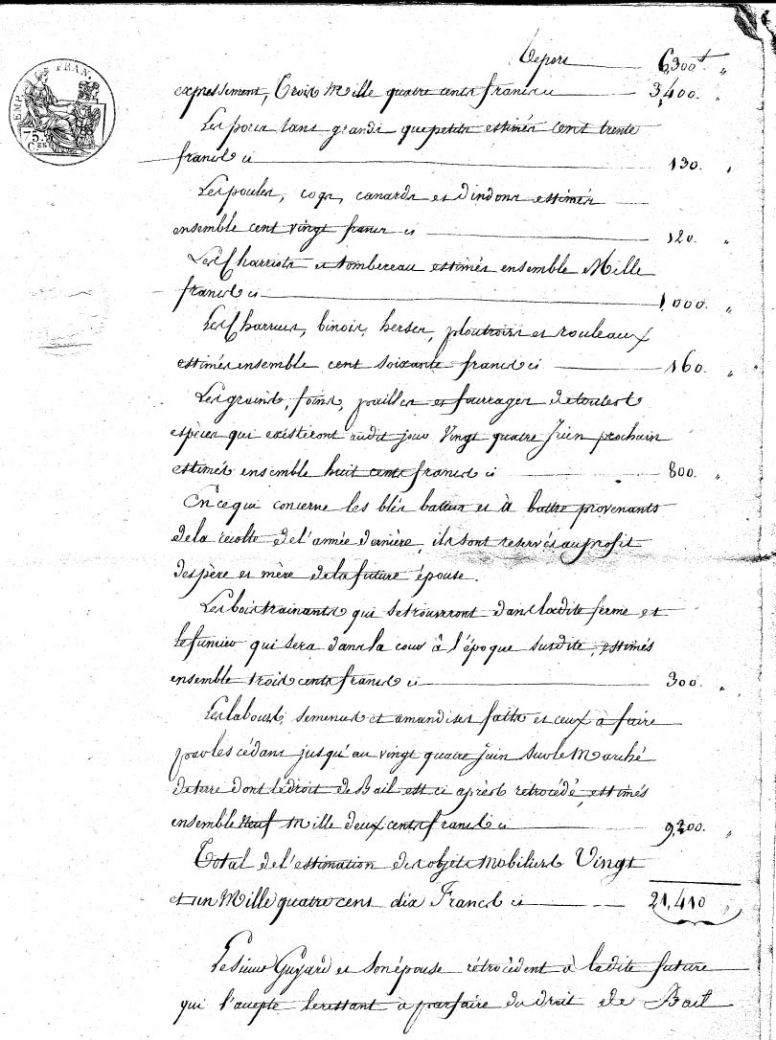 Report 6,300f "
expressement, Trois Mille quatre cents francs ci 3,400. "
Les porcs tans grands que petits estimés cent trente
francs ci 130. "
Les poules, coqs, canards et dindons estimés
ensemble cent vingt francs ci 120. "
EMP. FRAN.
75.
CEN
Les Charriots et tombereau estimés ensemble Mille
francs ci 1,000. "
Les Charrues, binoirs, herses, ploutroirs et rouleaux
estimés ensemble cent soixante francs ci 160. "
Les grains, foins, pailles et fourages de toutes
espèces qui existeront audit jour Vingt quatre Juin prochain
estimés ensemble huit cents francs ci 800. "
En ce qui concerne les blés battus et à battre provenants
de la récolte de l'année dernière, ils sont reservés au profit
des père et mère de la future épouse.
Les bois trainants qui se trouveront dans ladite ferme et
le fumier qui sera dans la cour à l'époque susdite, estimés
ensemble trois cents francs ci 300. "
Les labours, semences et amandises faits et ceux à faire
par les cédans jusqu'au vingt quatre Juin sur le Marché
de terre dont le droit de Bail est ci après retrocédé, estimés
ensemble Neuf Mille deux cents francs ci 9,200. "
Total de l'estimation des objets mobiliers Vingt
et un Mille quatre cent dix Francs ci 21,410 "
Le Sieur Guyard et son épouse rétrocèdent à ladite future
qui l'accepte le restant à parfaire du droit de Bail